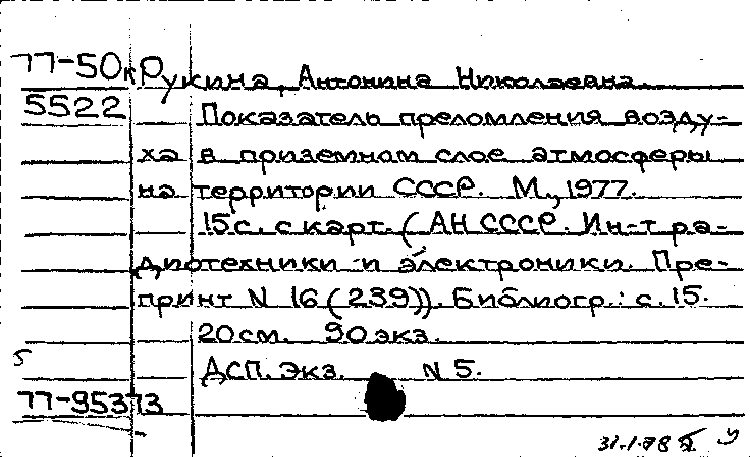 77-50к Рукина, Антонина Николаевна.
5522 Показатель преломления возду-
ха в приземном слое атмосферы
на территории СССР. М., 1977.
15 с. с карт. (АН СССР. Ин-т ра-
диотехники и электроники. Пре-
принт N 16 (239)). Библиогр.: с. 15.
20 см. 90 экз.
5 ДСП. Экз. N 5.
77-95373
31.1.78